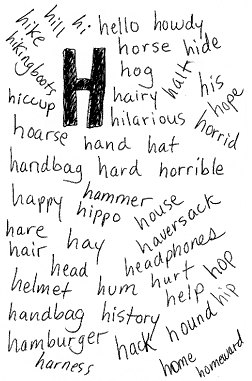 hike hill hi hello howdy
hiking boots H horse hide
hog halt
hiccup hairy his hope
hilarious horrid
hoarse hand hat
handbag hard horrible
happy hammer house
hippo haversack
hare hay headphones
hair head hurt hop
helmet hum help hip
handbag history hound
hamburger hack homeward
harness home